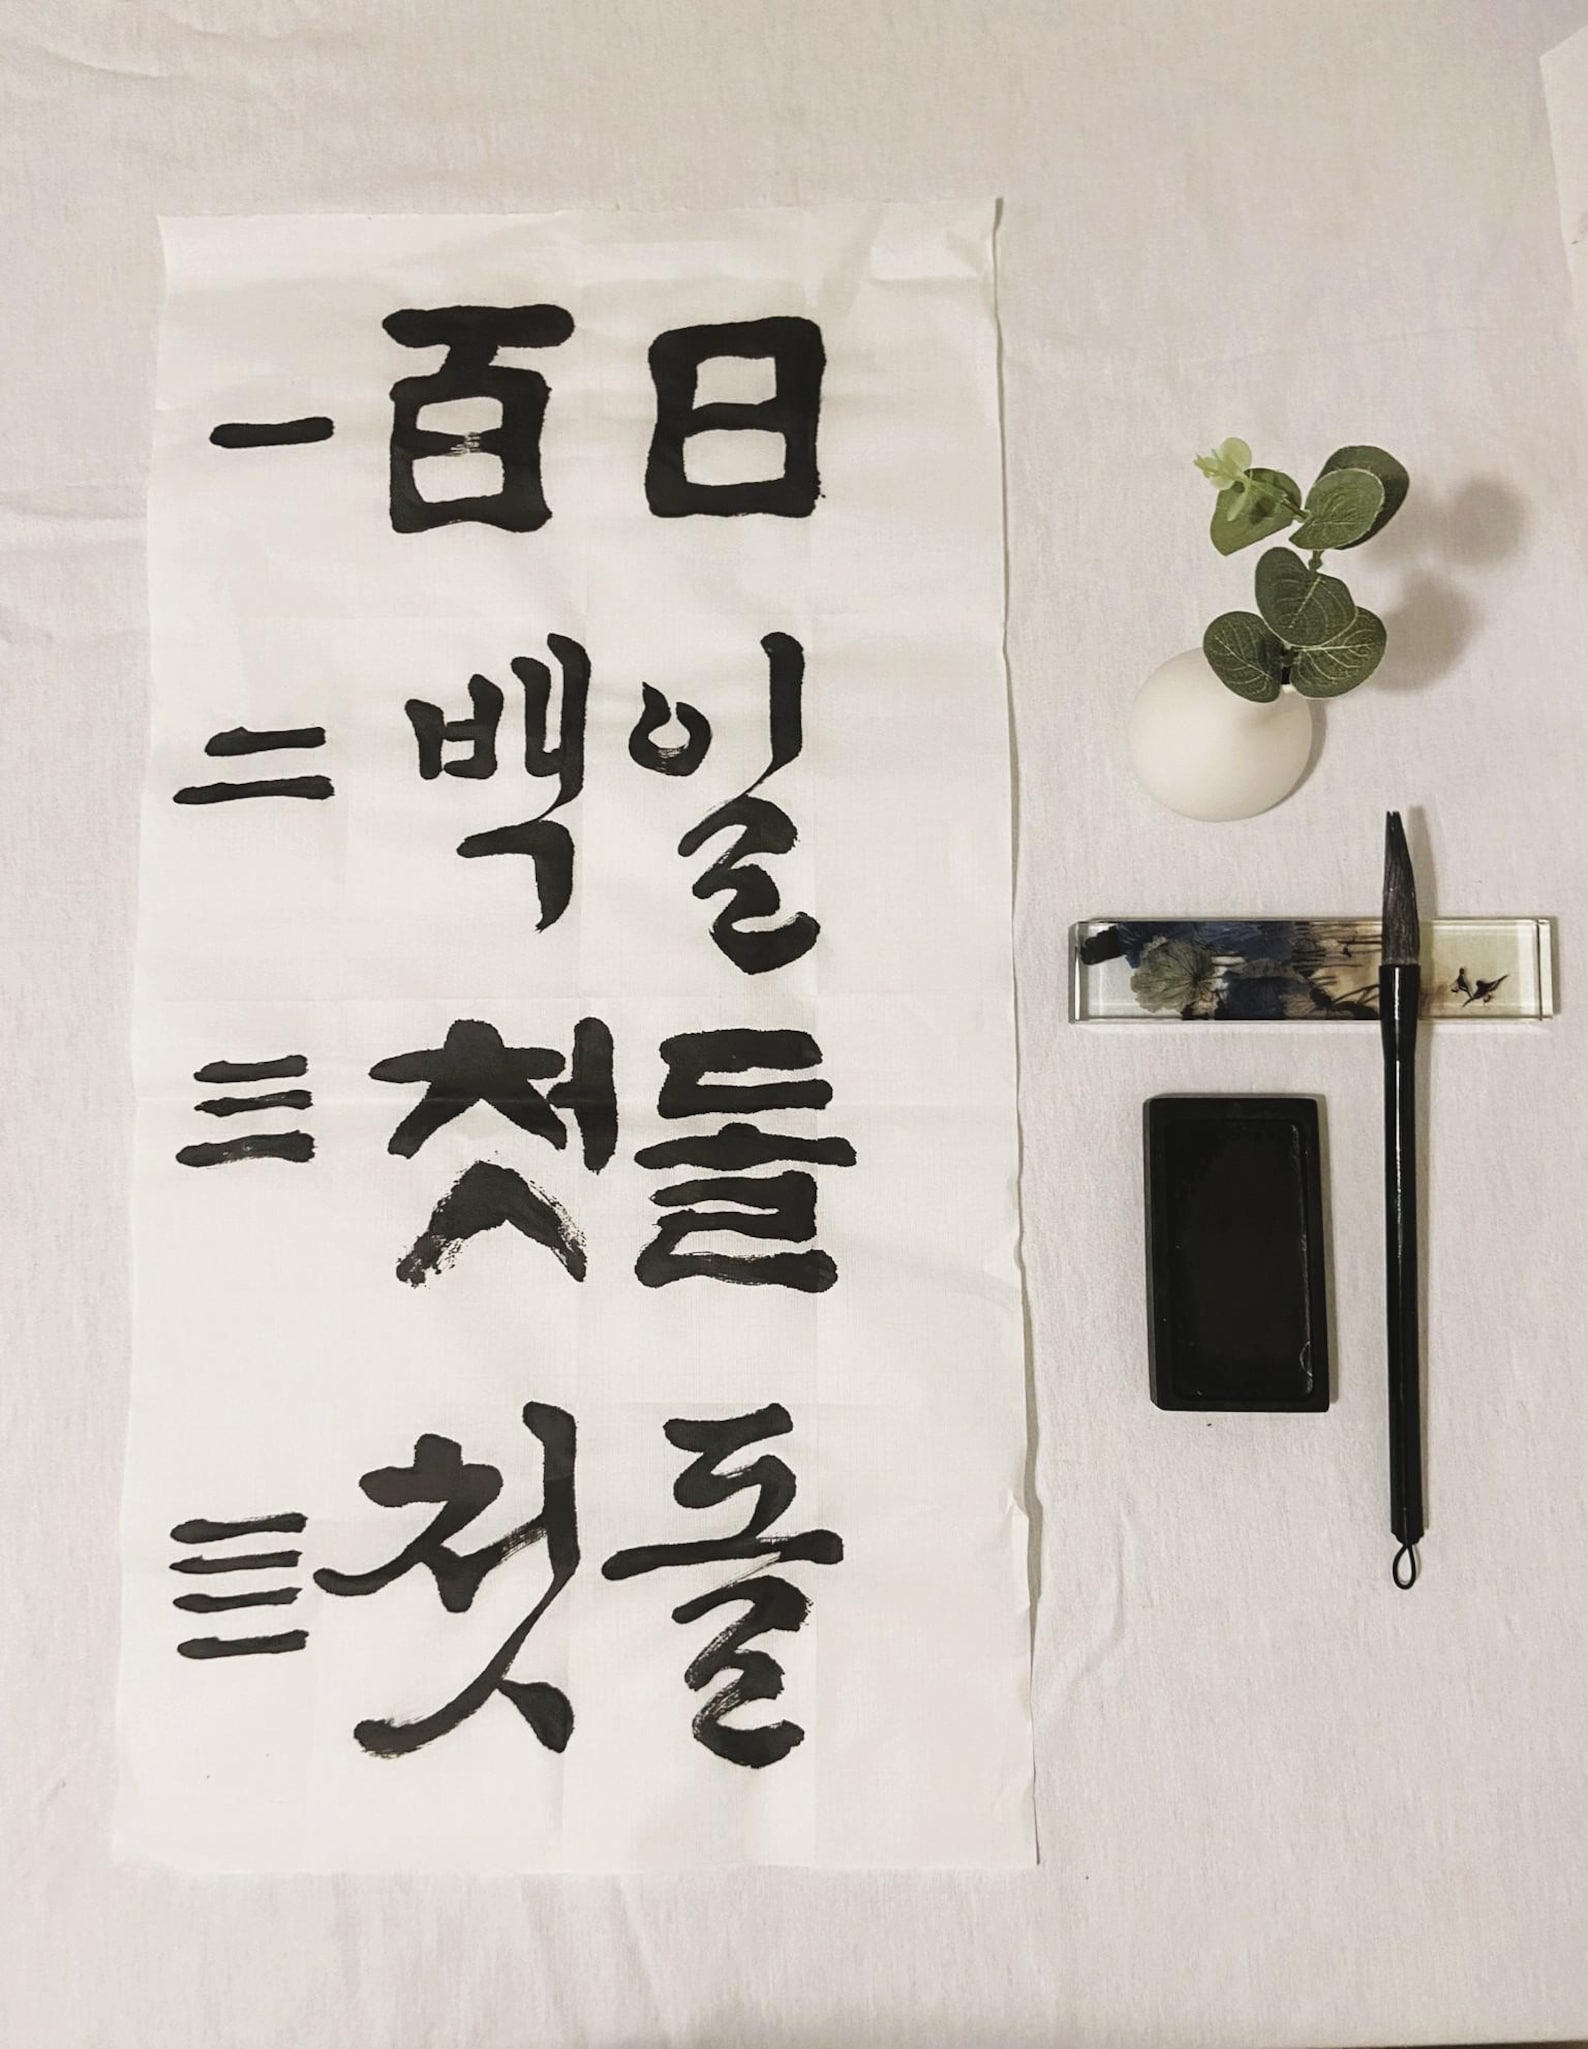 一 百日
二 백일
三 첫돌
亖 첫돌